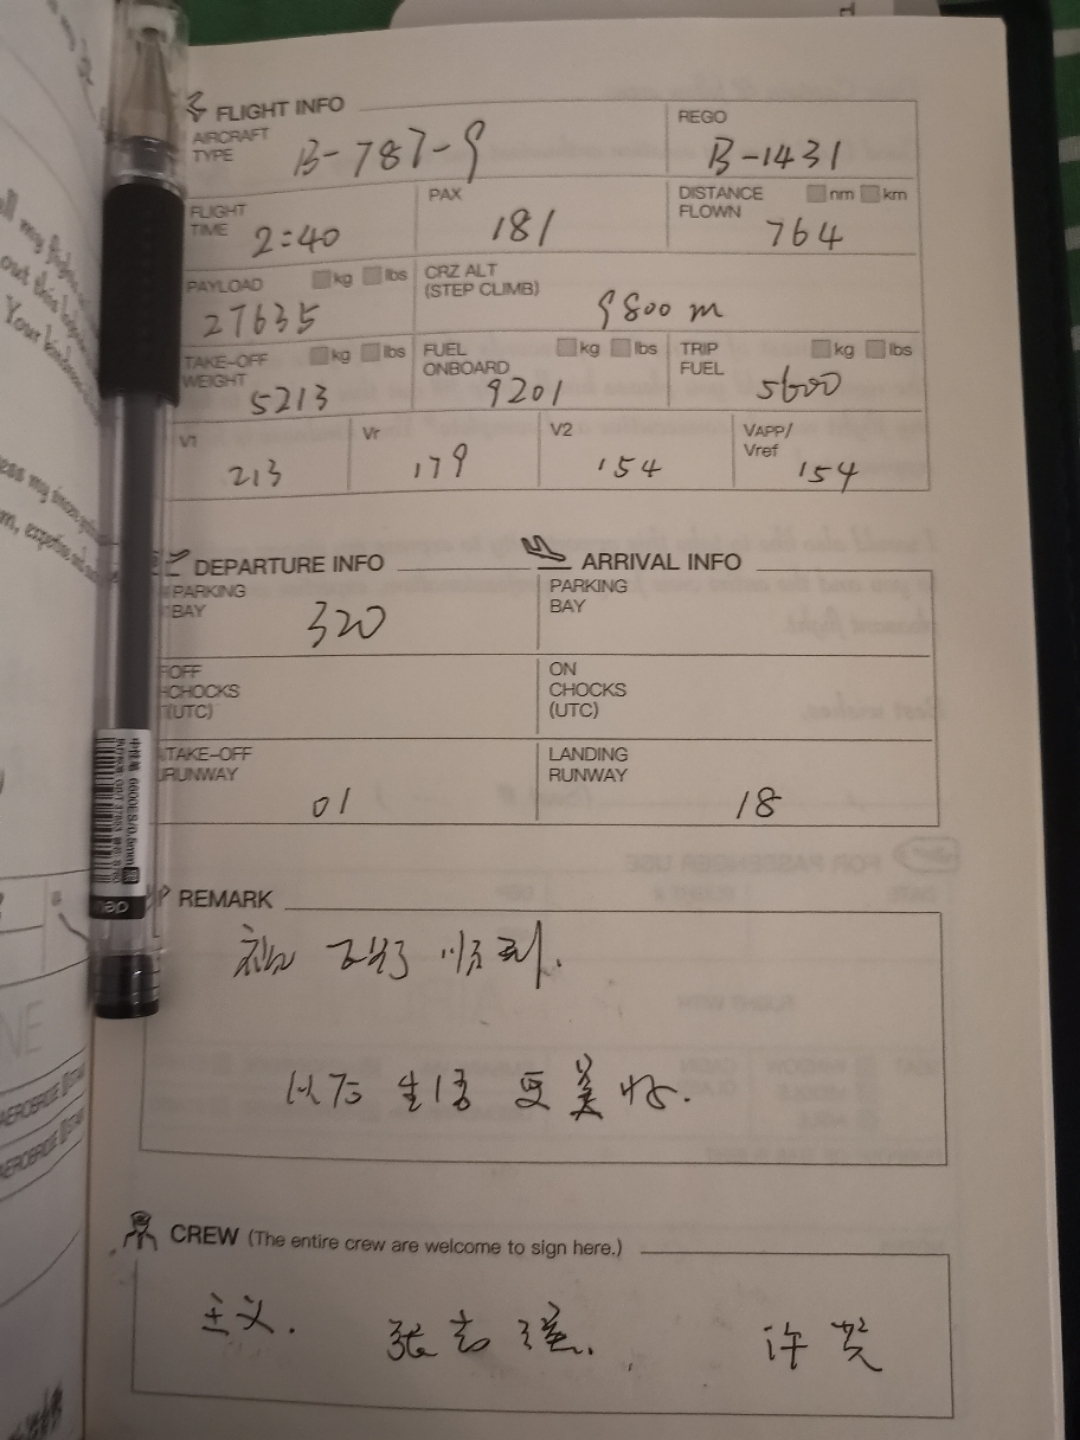 FLIGHT INFO
AIRCRAFT TYPE B-787-9
REGO B-1431
FLIGHT TIME 2:40
PAX 181
DISTANCE FLOWN nm km 764
PAYLOAD kg lbs 27635
CRZ ALT (STEP CLIMB) 9800 m
TAKE-OFF WEIGHT kg lbs 5213
FUEL ONBOARD kg lbs 9201
TRIP FUEL kg lbs 5600
V1 213
Vr 179
V2 154
VAPP/Vref 154
DEPARTURE INFO
PARKING BAY 320
OFF CHOCKS (UTC)
TAKE-OFF RUNWAY 01
ARRIVAL INFO
PARKING BAY
ON CHOCKS (UTC)
LANDING RUNWAY 18
REMARK
祝 顺利.
以后 生活 更 美 好.
CREW (The entire crew are welcome to sign here.)
张志强. 许
all my flights
out this
Your kindness
AEROBRIDGE
AEROBRIDGE
中性笔 6600ES/0.5mm